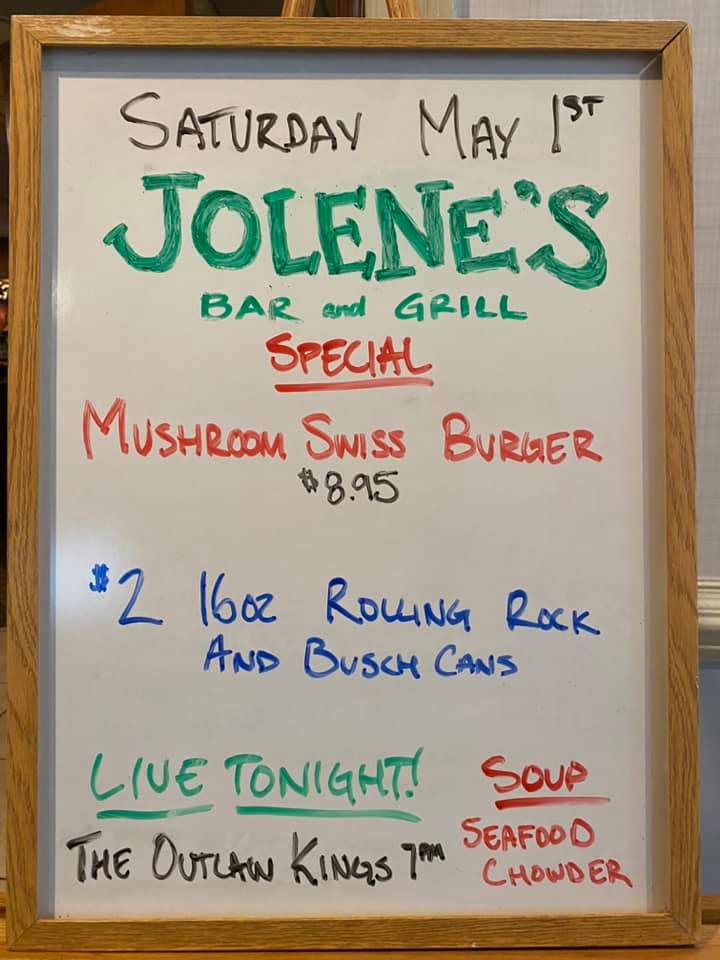 SATURDAY MAY 1ST
JOLENE'S
BAR and GRILL
SPECIAL
MUSHROOM SWISS BURGER
$8.95
$2 16oz ROLLING ROCK
AND BUSCH CANS
LIVE TONIGHT!
THE OUTLAW KINGS 7PM
SOUP
SEAFOOD
CHOWDER